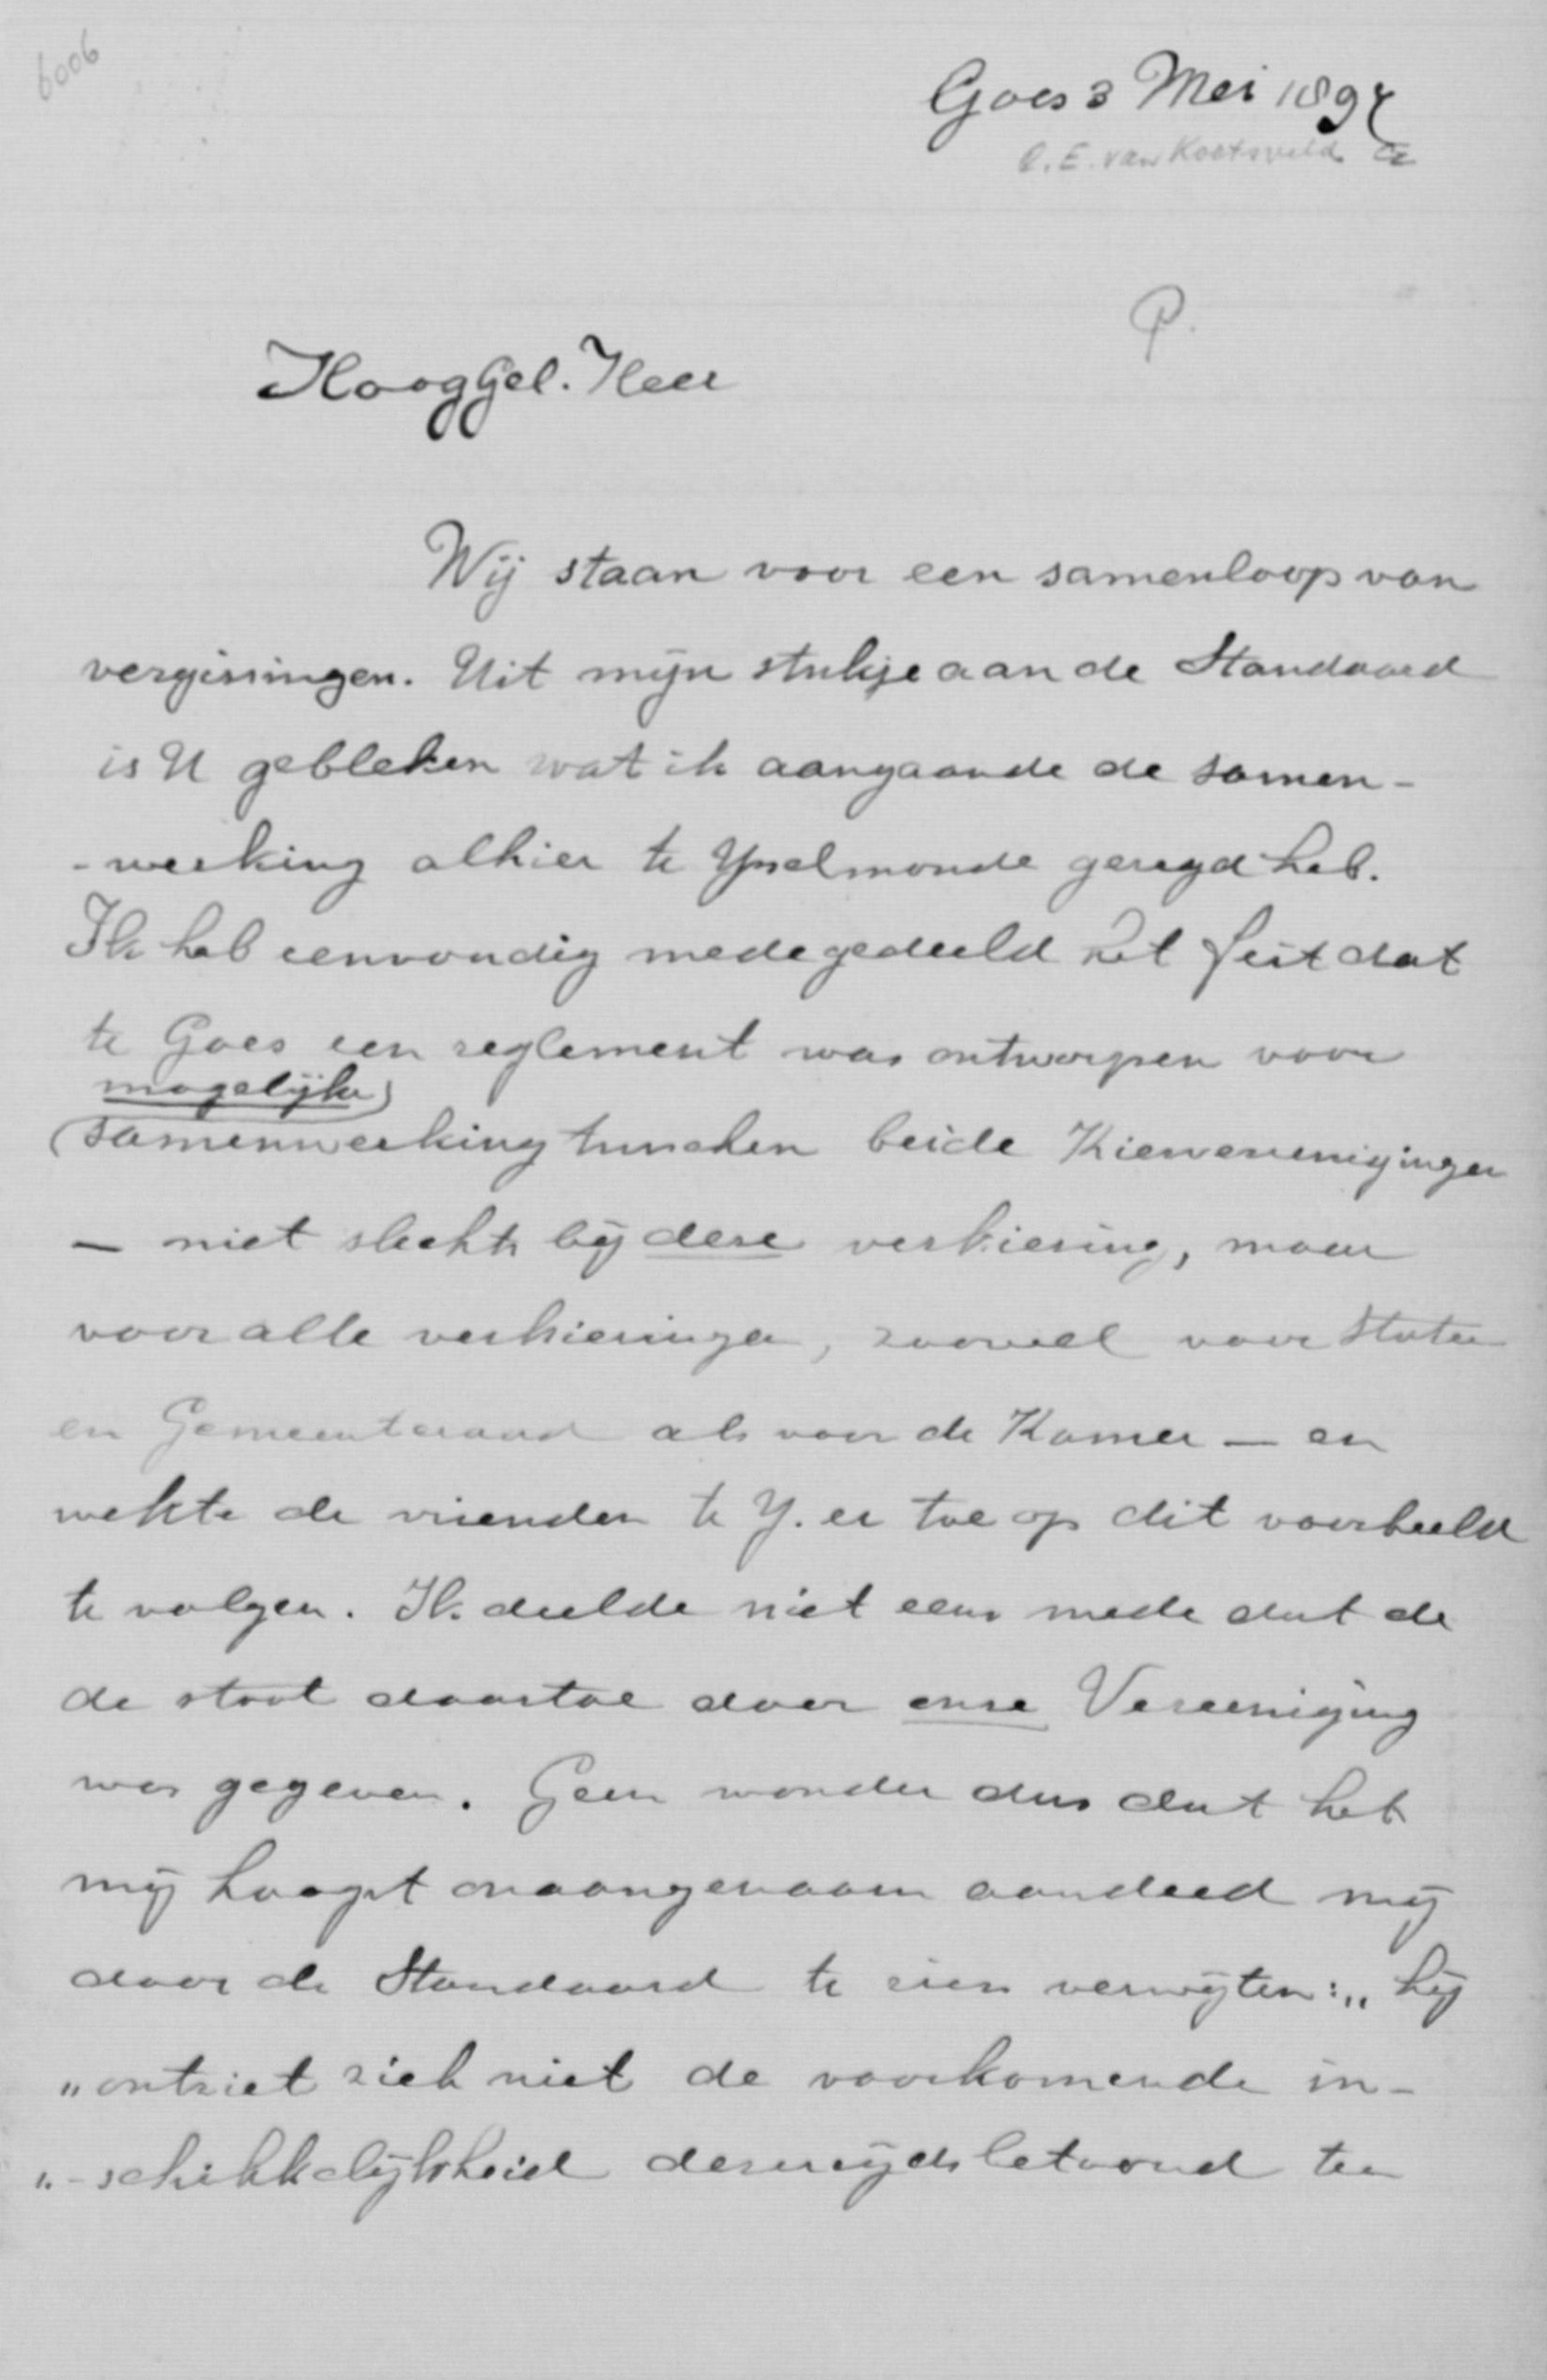 6006
Goes 3 Mei 1897
C. E. van Koetsveld
P.
HoogGel. Heer
Wij staan voor een samenloop van
vergissingen. Uit mijn stukje aan de Standaard
is U gebleken wat ik aangaande de samen-
-werking alhier te Ysselmonde gezegd heb.
Ik heb eenvoudig medegedeeld het feit dat
te Goes een reglement was ontworpen voor
mogelijke
samenwerking tusschen beide Kiesvereenigingen
— niet slechts bij deze verkiezing, maar
voor alle verkiezingen, zoowel voor Staten
en Gemeenteraad als voor de Kamer — en
wekte de vrienden te Y. er toe op dit voorbeeld
te volgen. Ik deelde niet eens mede dat de
de stoot daartoe door onze Vereeniging
was gegeven. Geen wonder dus dat het
mij hoogst onaangenaam aandeed mij
door de Standaard te zien verwijten: „hij
„ontziet zich niet de voorkomende in-
„-schikkelijkheid dezerzijds betoond ten